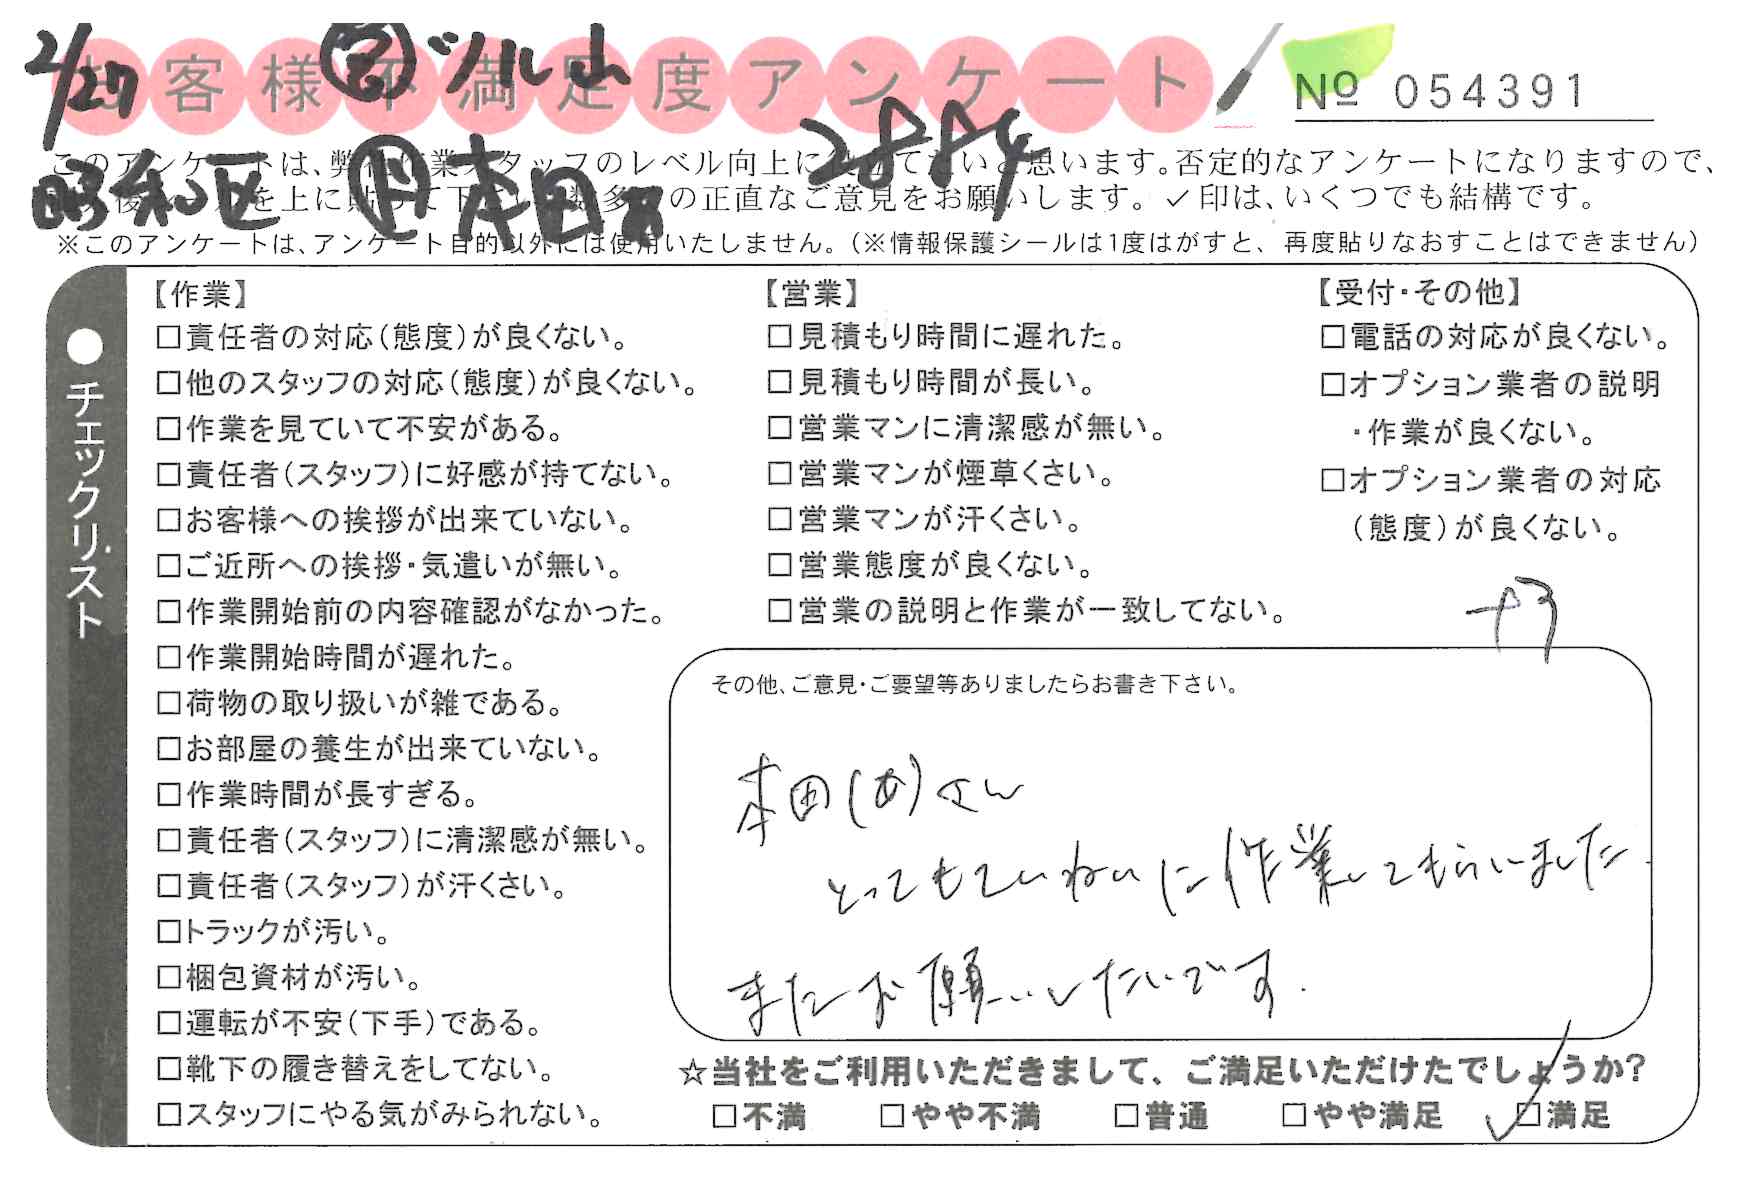 2/27
お客様不満足度アンケート
№ 054391
ヅル山
2884
昭和区 本田
このアンケートは、弊社作業スタッフのレベル向上に役立てたいと思います。否定的なアンケートになりますので、
を上に貼って下さい。数多くの正直なご意見をお願いします。✓印は、いくつでも結構です。
※このアンケートは、アンケート目的以外には使用いたしません。(※情報保護シールは1度はがすと、再度貼りなおすことはできません)
●チェックリスト
【作業】
□責任者の対応(態度)が良くない。
□他のスタッフの対応(態度)が良くない。
□作業を見ていて不安がある。
□責任者(スタッフ)に好感が持てない。
□お客様への挨拶が出来ていない。
□ご近所への挨拶・気遣いが無い。
□作業開始前の内容確認がなかった。
□作業開始時間が遅れた。
□荷物の取り扱いが雑である。
□お部屋の養生が出来ていない。
□作業時間が長すぎる。
□責任者(スタッフ)に清潔感が無い。
□責任者(スタッフ)が汗くさい。
□トラックが汚い。
□梱包資材が汚い。
□運転が不安(下手)である。
□靴下の履き替えをしてない。
□スタッフにやる気がみられない。
【営業】
□見積もり時間に遅れた。
□見積もり時間が長い。
□営業マンに清潔感が無い。
□営業マンが煙草くさい。
□営業マンが汗くさい。
□営業態度が良くない。
□営業の説明と作業が一致してない。
【受付・その他】
□電話の対応が良くない。
□オプション業者の説明
・作業が良くない。
□オプション業者の対応
(態度)が良くない。
+3
その他、ご意見・ご要望等ありましたらお書き下さい。
本田(あ)さん
とってもていねいに作業してもらいました
またお願いしたいです.
☆当社をご利用いただきまして、ご満足いただけたでしょうか?
□不満 □やや不満 □普通 □やや満足 ✓□満足